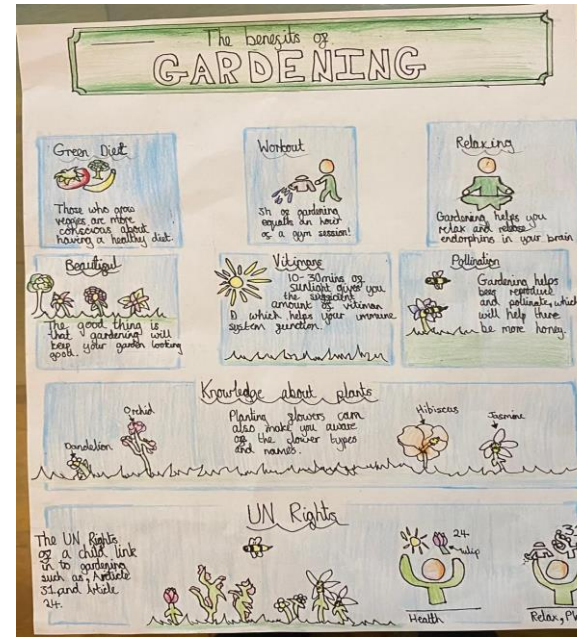 The benefits of
GARDENING
Green Diet
Those who grow
veggies are more
conscious about
having a healthy diet.
Workout
3h of gardening
equals an hour
of a gym session!
Relaxing
Gardening helps you
relax and release
endorphins in your brain
Beautiful
The good thing is
that gardening will
keep your garden looking
good.
Vitimans
10-30mins of
sunlight gives you
the sufficient
amount of vitiman
D which helps your immune
system function.
Pollination
Gardening helps
bees reproduce
and pollinate, which
will help there
be more honey.
Knowledge about plants
Dandelion
Orchid
Planting flowers can
also make you aware
of the flower types
and names.
Hibiscas
Jasmine
UN Rights
The UN Rights
of a child link
in to gardening
such as, Article
31 and Article
24.
24.
tulip
Health
31
Relax,